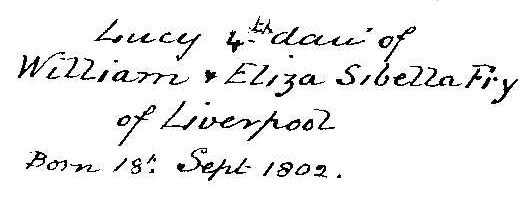 Lucy 4th dau of
William & Eliza Sibella Fry
of Liverpool
Born 18th. Sept 1802.